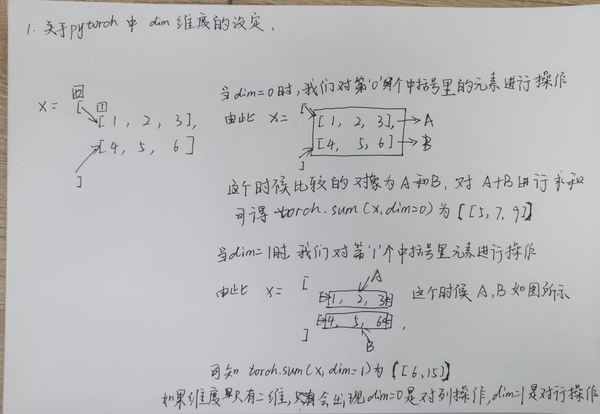 1. 关于pytorch 中 dim 维度的设定、
X =
[0]
[
[1]
[1, 2, 3],
[4, 5, 6]
]
当dim=0时,我们对第'0'个中括号里的元素进行操作
由此 X =
[
[1, 2, 3], → A
[4, 5, 6] → B
]
这个时候比较的对象为 A 和 B, 对 A+B 进行求和
可得 torch.sum(X,dim=0)为 [[5,7,9]]
当dim=1时,我们对第'1'个中括号里元素进行操作
由此 X =
[
A
[1, 2, 3]
[4, 5, 6]
]
B
这个时候 A,B 如图所示
,
可知 torch.sum(X,dim=1)为 [[6,15]]
如果维度只有二维,会出现dim=0是对列操作,dim=1是对行操作